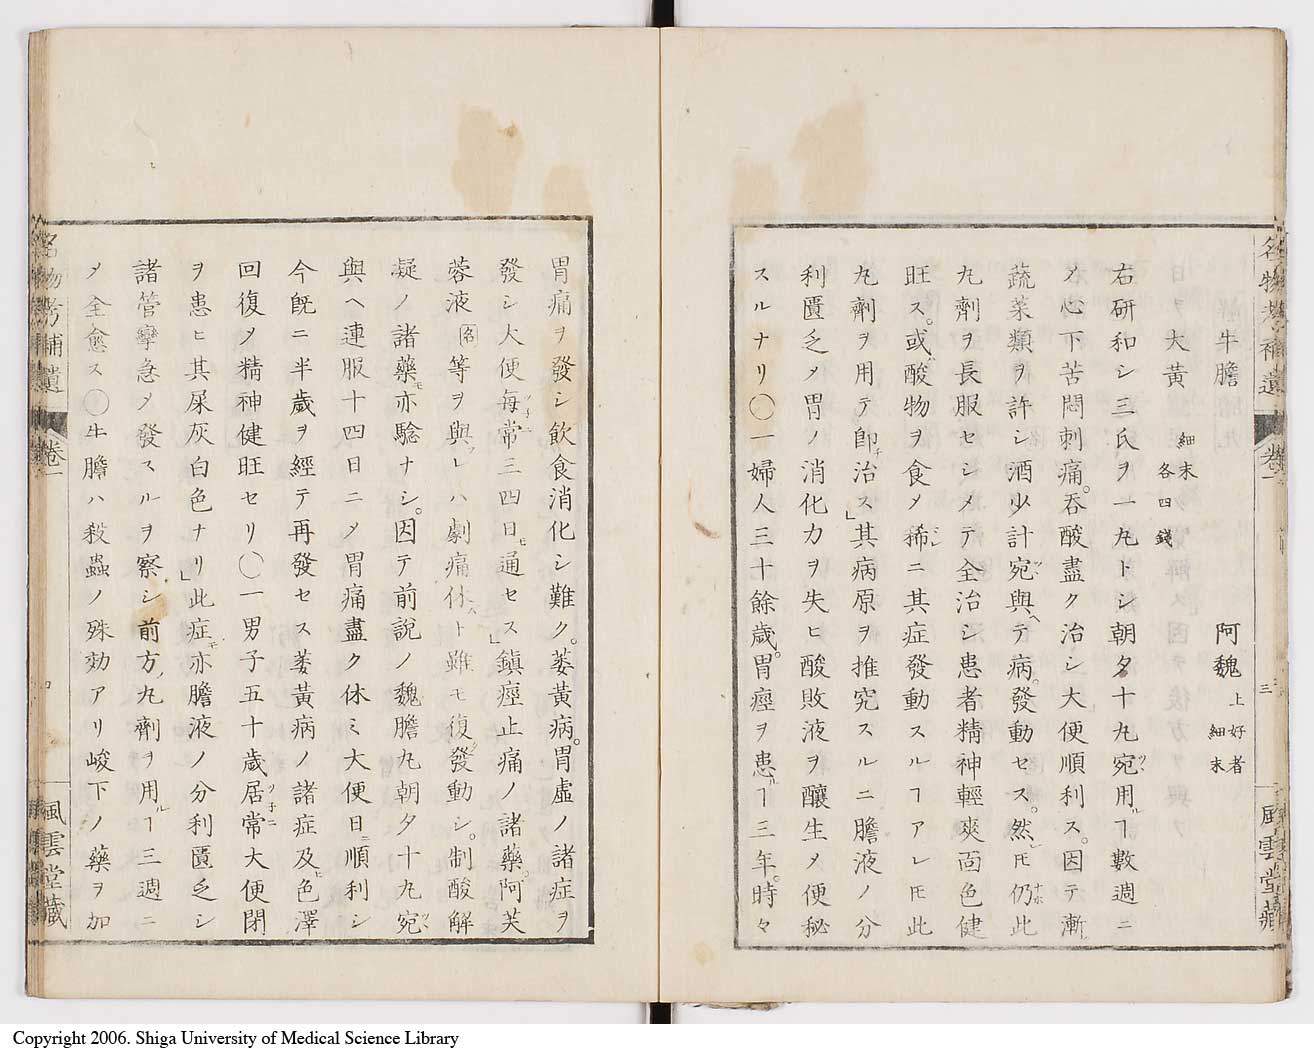 名物考補遺 卷一 三 風雲堂藏
牛膽 阿魏上好者細末
大黃細末各四錢
右研和シ三氏ヲ一丸トシ朝夕十丸宛用ルヿ數週ニ
〆心下苦悶刺痛。呑酸盡ク治シ大便順利ス。因テ漸
蔬菜類ヲ許シ酒少計宛與ヘテ病。發動セス。然レ𪜈仍此
丸劑ヲ長服セシメテ全治シ患者精神輕爽面色健
旺ス。或酸物ヲ食〆稀ニ其症發動スルヿアレ𪜈此
丸劑ヲ用テ即チ治ス」其病原ヲ推究スルニ膽液ノ分
利匱乏〆胃ノ消化力ヲ失ヒ酸敗液ヲ釀生〆便秘
スルナリ〇一婦人三十餘歲。胃痙ヲ患ルヿ三年。時々
胃痛ヲ發シ飲食消化シ難ク。萎黃病。胃虛ノ諸症ヲ
發シ大便每常三四日ヒ通セス」鎭痙止痛ノ諸藥。阿芙
蓉液名等ヲ與レハ劇痛休ト雖モ復發動シ。制酸解
凝ノ諸藥モ亦驗ナシ。因テ前說ノ魏膽丸朝夕十丸宛
與ヘ連服十四日ニ〆胃痛盡ク休ミ大便日ニ順利シ
今旣ニ半歲ヲ經テ再發セス萎黃病ノ諸症及ヒ色澤
回復〆精神健旺セリ〇一男子五十歲居常大便閉
ヲ患ヒ其屎灰白色ナリ」此症モ亦膽液ノ分利匱乏シ
諸管攣急〆發スルヲ察シ前方ノ丸劑ヲ用ルヿ三週ニ
〆全愈ス〇牛膽ハ殺蟲ノ殊効アリ峻下ノ藥ヲ加
名物考補遺 卷一 風雲堂藏
Copyright 2006. Shiga University of Medical Science Library